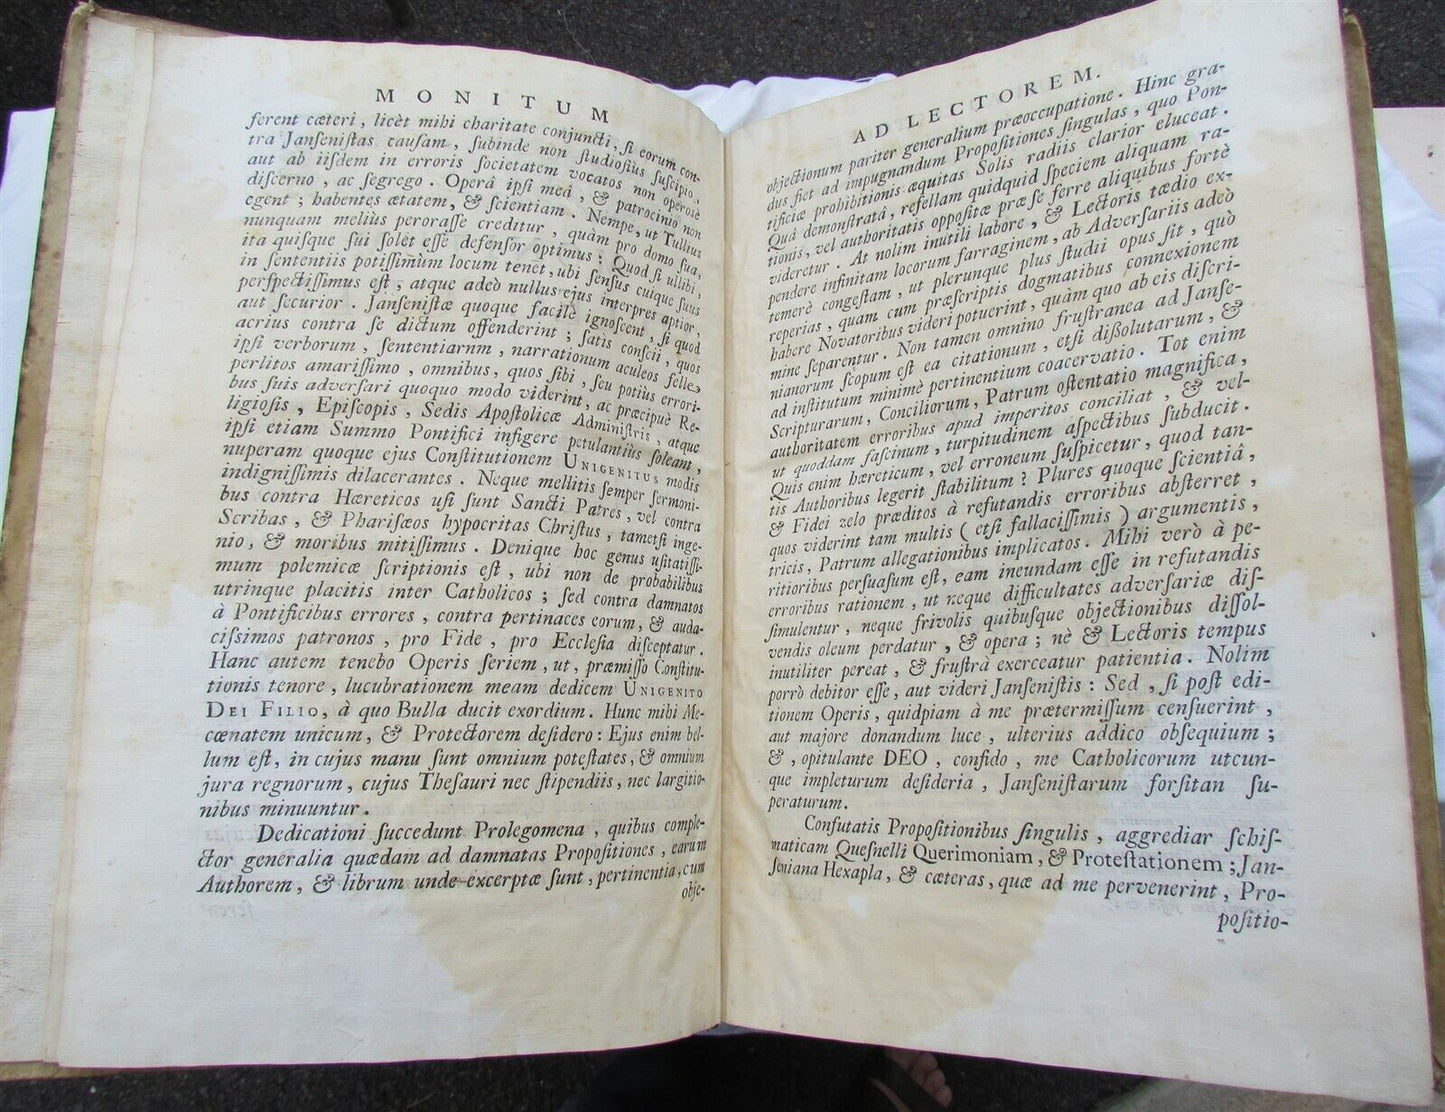 MONITUM
ferent cæteri, licèt mihi charitate conjuncti, ſi eorum con-
tra Janſeniſtas cauſam, ſubinde non ſtudioſiùs ſuſcipio,
aut ab iiſdem in erroris ſocietatem vocatos non operosè
diſcerno, ac ſegrego. Operâ ipſi meâ, & patrocinio non
egent; habentes ætatem, & ſcientiam. Nempe, ut Tullius
nunquam meliùs peroraſſe creditur, quàm pro domo ſua,
ita quiſque ſui ſolet eſſe defenſor optimus: Quod ſi ullibi,
in ſententiis potiſſimùm locum tenet, ubi ſenſus cuique ſuus
perſpectiſſimus eſt, atque adeò nullus ejus interpres aptior,
aut ſecurior. Janſeniſtæ quoque facilè ignoſcent, ſi quod
acrius contra ſe dictum offenderint; ſatis conſcii, quos
ipſi verborum, ſententiarnm, narrationum aculeos felle
perlitos amariſſimo, omnibus, quos ſibi, ſeu potiùs errori-
bus ſuis adverſari quoquo modo viderint, ac præcipuè Re-
ligioſis, Epiſcopis, Sedis Apoſtolicæ Adminiſtris, atque
ipſi etiam Summo Pontifici infigere petulantiùs ſoleant,
nuperam quoque ejus Conſtitutionem UNIGENITUS modis
indigniſſimis dilacerantes. Neque mellitis ſemper ſermoni-
bus contra Hæreticos uſi ſunt Sancti Patres, vel contra
Scribas, & Phariſæos hypocritas Chriſtus, tametſi inge-
nio, & moribus mitiſſimus. Denique hoc genus uſitatiſſi-
mum polemicæ ſcriptionis eſt, ubi non de probabilibus
utrinque placitis inter Catholicos; ſed contra damnatos
à Pontificibus errores, contra pertinaces eorum, & auda-
ciſſimos patronos, pro Fide, pro Eccleſia diſceptatur.
Hanc autem tenebo Operis ſeriem, ut, præmiſſo Conſtitu-
tionis tenore, lucubrationem meam dedicem UNIGENITO
DEI FILIO, à quo Bulla ducit exordium. Hunc mihi Me-
cœnatem unicum, & Protectorem deſidero: Ejus enim bel-
lum eſt, in cujus manu ſunt omnium poteſtates, & omnium
jura regnorum, cujus Theſauri nec ſtipendiis, nec largitio-
nibus minuuntur.
Dedicationi ſuccedunt Prolegomena, quibus comple-
ctor generalia quædam ad damnatas Propoſitiones, earum
Authorem, & librum unde excerptæ ſunt, pertinentia, cum
obje-
AD LECTOREM.
objectionum pariter generalium præoccupatione. Hinc gra-
dus fiet ad impugnandum Propoſitiones ſingulas, quo Pon-
tificiæ prohibitionis æquitas Solis radiis clarior eluceat.
Quâ demonſtratâ, refellam quidquid ſpeciem aliquam ra-
tionis, vel authoritatis oppoſitæ præ ſe ferre aliquibus fortè
videretur. At nolim inutili labore, & Lectoris tædio ex-
pendere infinitam locorum farraginem, ab Adverſariis adeò
temerè congeſtam, ut plerunque plus ſtudii opus ſit, quò
reperias, quam cum præſcriptis dogmatibus connexionem
habere Novatoribus videri potuerint, quàm quo ab eis diſcri-
mine ſeparentur. Non tamen omnino fruſtranea ad Janſe-
nianorum ſcopum eſt ea citationum, etſi diſſolutarum, &
ad inſtitutum minimè pertinentium coacervatio. Tot enim
Scripturarum, Conciliorum, Patrum oſtentatio magnifica,
authoritatem erroribus apud imperitos conciliat, & vel-
ut quoddam faſcinum, turpitudinem aſpectibus ſubducit.
Quis enim hæreticum, vel erroneum ſuſpicetur, quod tan-
tis Authoribus legerit ſtabilitum? Plures quoque ſcientiâ,
& Fidei zelo præditos à refutandis erroribus abſterret,
quos viderint tam multis (etſi fallaciſſimis) argumentis,
tricis, Patrum allegationibus implicatos. Mihi verò à pe-
ritioribus perſuaſum eſt, eam ineundam eſſe in refutandis
erroribus rationem, ut neque difficultates adverſariæ diſ-
ſimulentur, neque frivolis quibuſque objectionibus diſſol-
vendis oleum perdatur, & opera; nè & Lectoris tempus
inutiliter pereat, & fruſtrà exerceatur patientia. Nolim
porrò debitor eſſe, aut videri Janſeniſtis: Sed, ſi poſt edi-
tionem Operis, quidpiam à me prætermiſſum cenſuerint,
aut majore donandum luce, ulterius addico obſequium;
&, opitulante DEO, confido, me Catholicorum utcun-
que impleturum deſideria, Janſeniſtarum forſitan ſu-
peraturum.
Confutatis Propoſitionibus ſingulis, aggrediar ſchiſ-
maticam Queſnelli Querimoniam, & Proteſtationem; Jan-
ſeniana Hexapla, & cæteras, quæ ad me pervenerint, Pro-
poſitio-